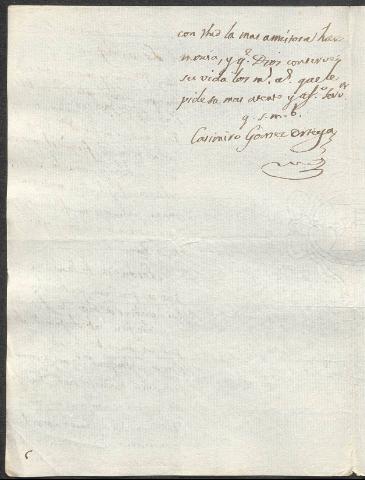 con Vmd la mas amistosa har-
monia, y q.e Dios conserve
su vida los m.s a.s que le
pide su mas atento y af.to serv.or
q. s. m. b.
Casimiro Gomez Ortega